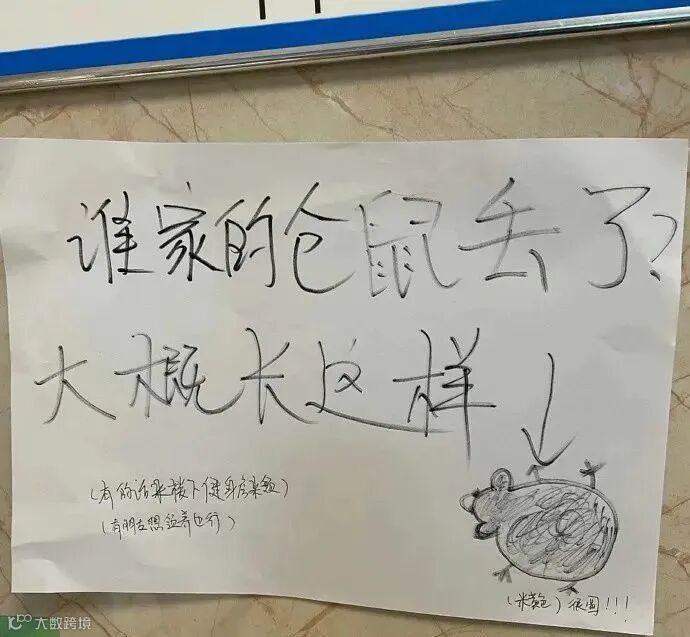 谁家的仓鼠丢了?
大概长这样
(有的话来楼下健身房来领)
(有朋友想领养也行)
(米黄色)很圆!!!
大数跨境